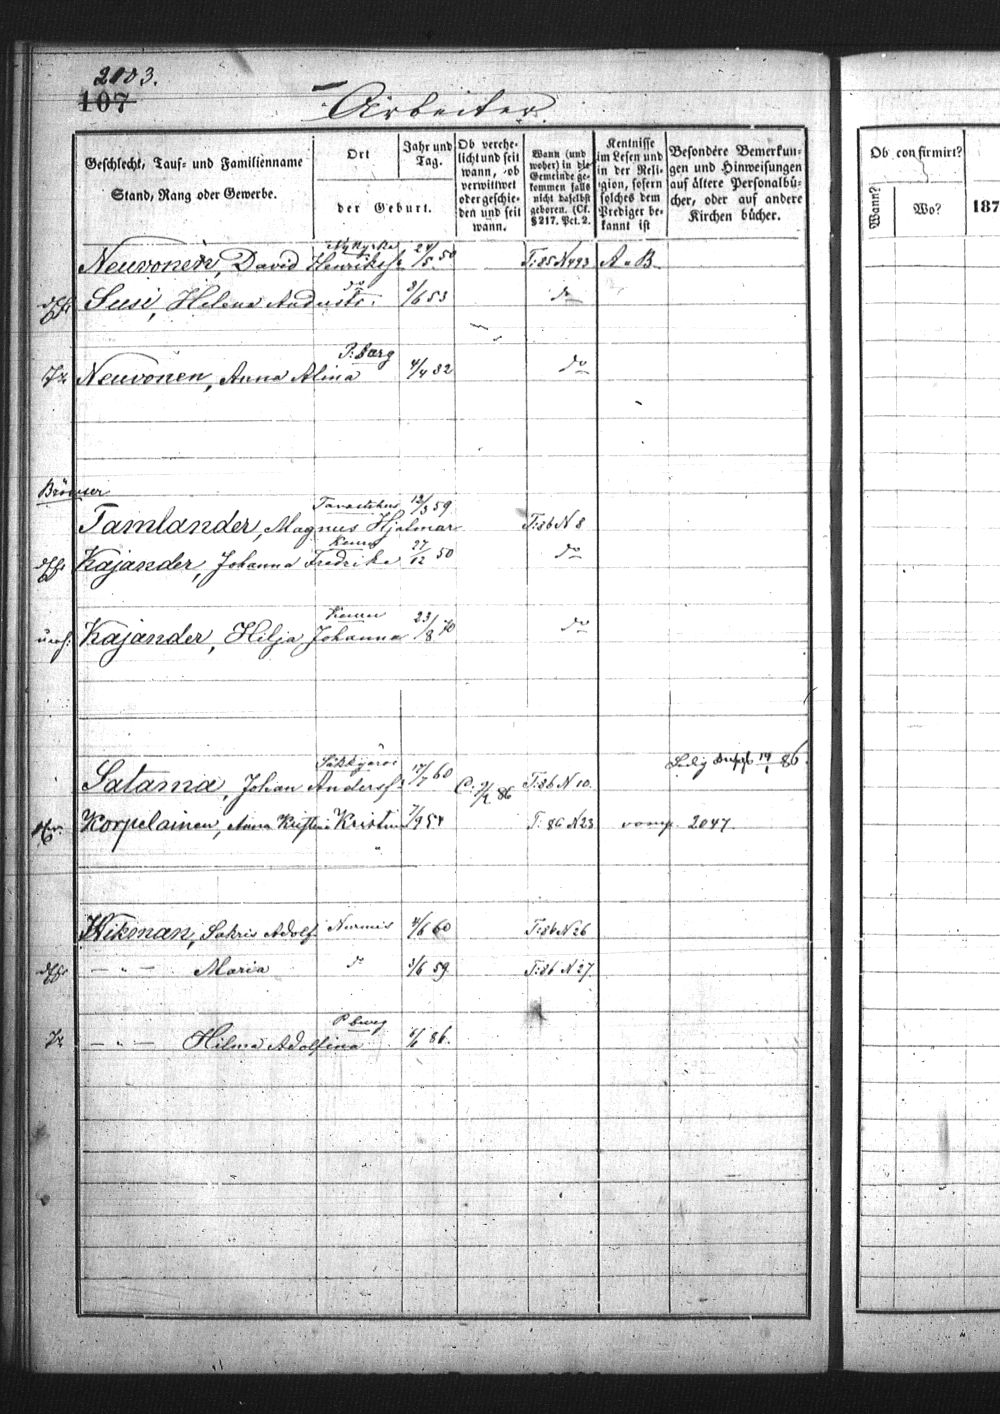 2103.
107
Arbeiter.
Geschlecht, Tauf- und Familienname
Stand, Rang oder Gewerbe.
Ort
der Geburt.
Jahr und
Tag.
Ob verehe-
licht und seit
wann, ob
verwittwet
oder geschie-
den und seit
wann.
Wann (und
woher) in die
Gemeinde ge-
kommen falls
nicht daselbst
geboren. (Cf.
§ 217. Pct. 2.
Kentnisse
im Lesen und
in der Reli-
gion, sofern
solches dem
Prediger be-
kannt ist
Besondere Bemerkun-
gen und Hinweisungen
auf ältere Personalbü-
cher, oder auf andere
Kirchen bücher.
Ob confirmirt?
Wann?
Wo?
187
Neuvonen, David Henrikss. Nykyrka 24/5 50 T:85 N 493 A u B
Susi, Helena Anderstr. do 3/6 53 do
Neuvonen, Anna Alina P:burg 4/4 82 do
Tamlander, Magnus Hjalmar Tavastehus 12/3 59 T:86 N 8
Kajander, Johanna Fredrika 27/12 50 do
Kajander, Hilja Johanna 23/8 70 do
Satama, Johan Anderss. Säkkijärvi 17/7 60 T:86 N 10. 19/1 86.
Korpelainen, Anna Kristina 7/9 54 T: 86 N 23 2047.
Wikman, Sakris Adolf Nurmis 4/6 60 T:86 N 26
— " — Maria do 3/6 59 T:86 N 27.
— " — Hilma Adolfina P burg 86.